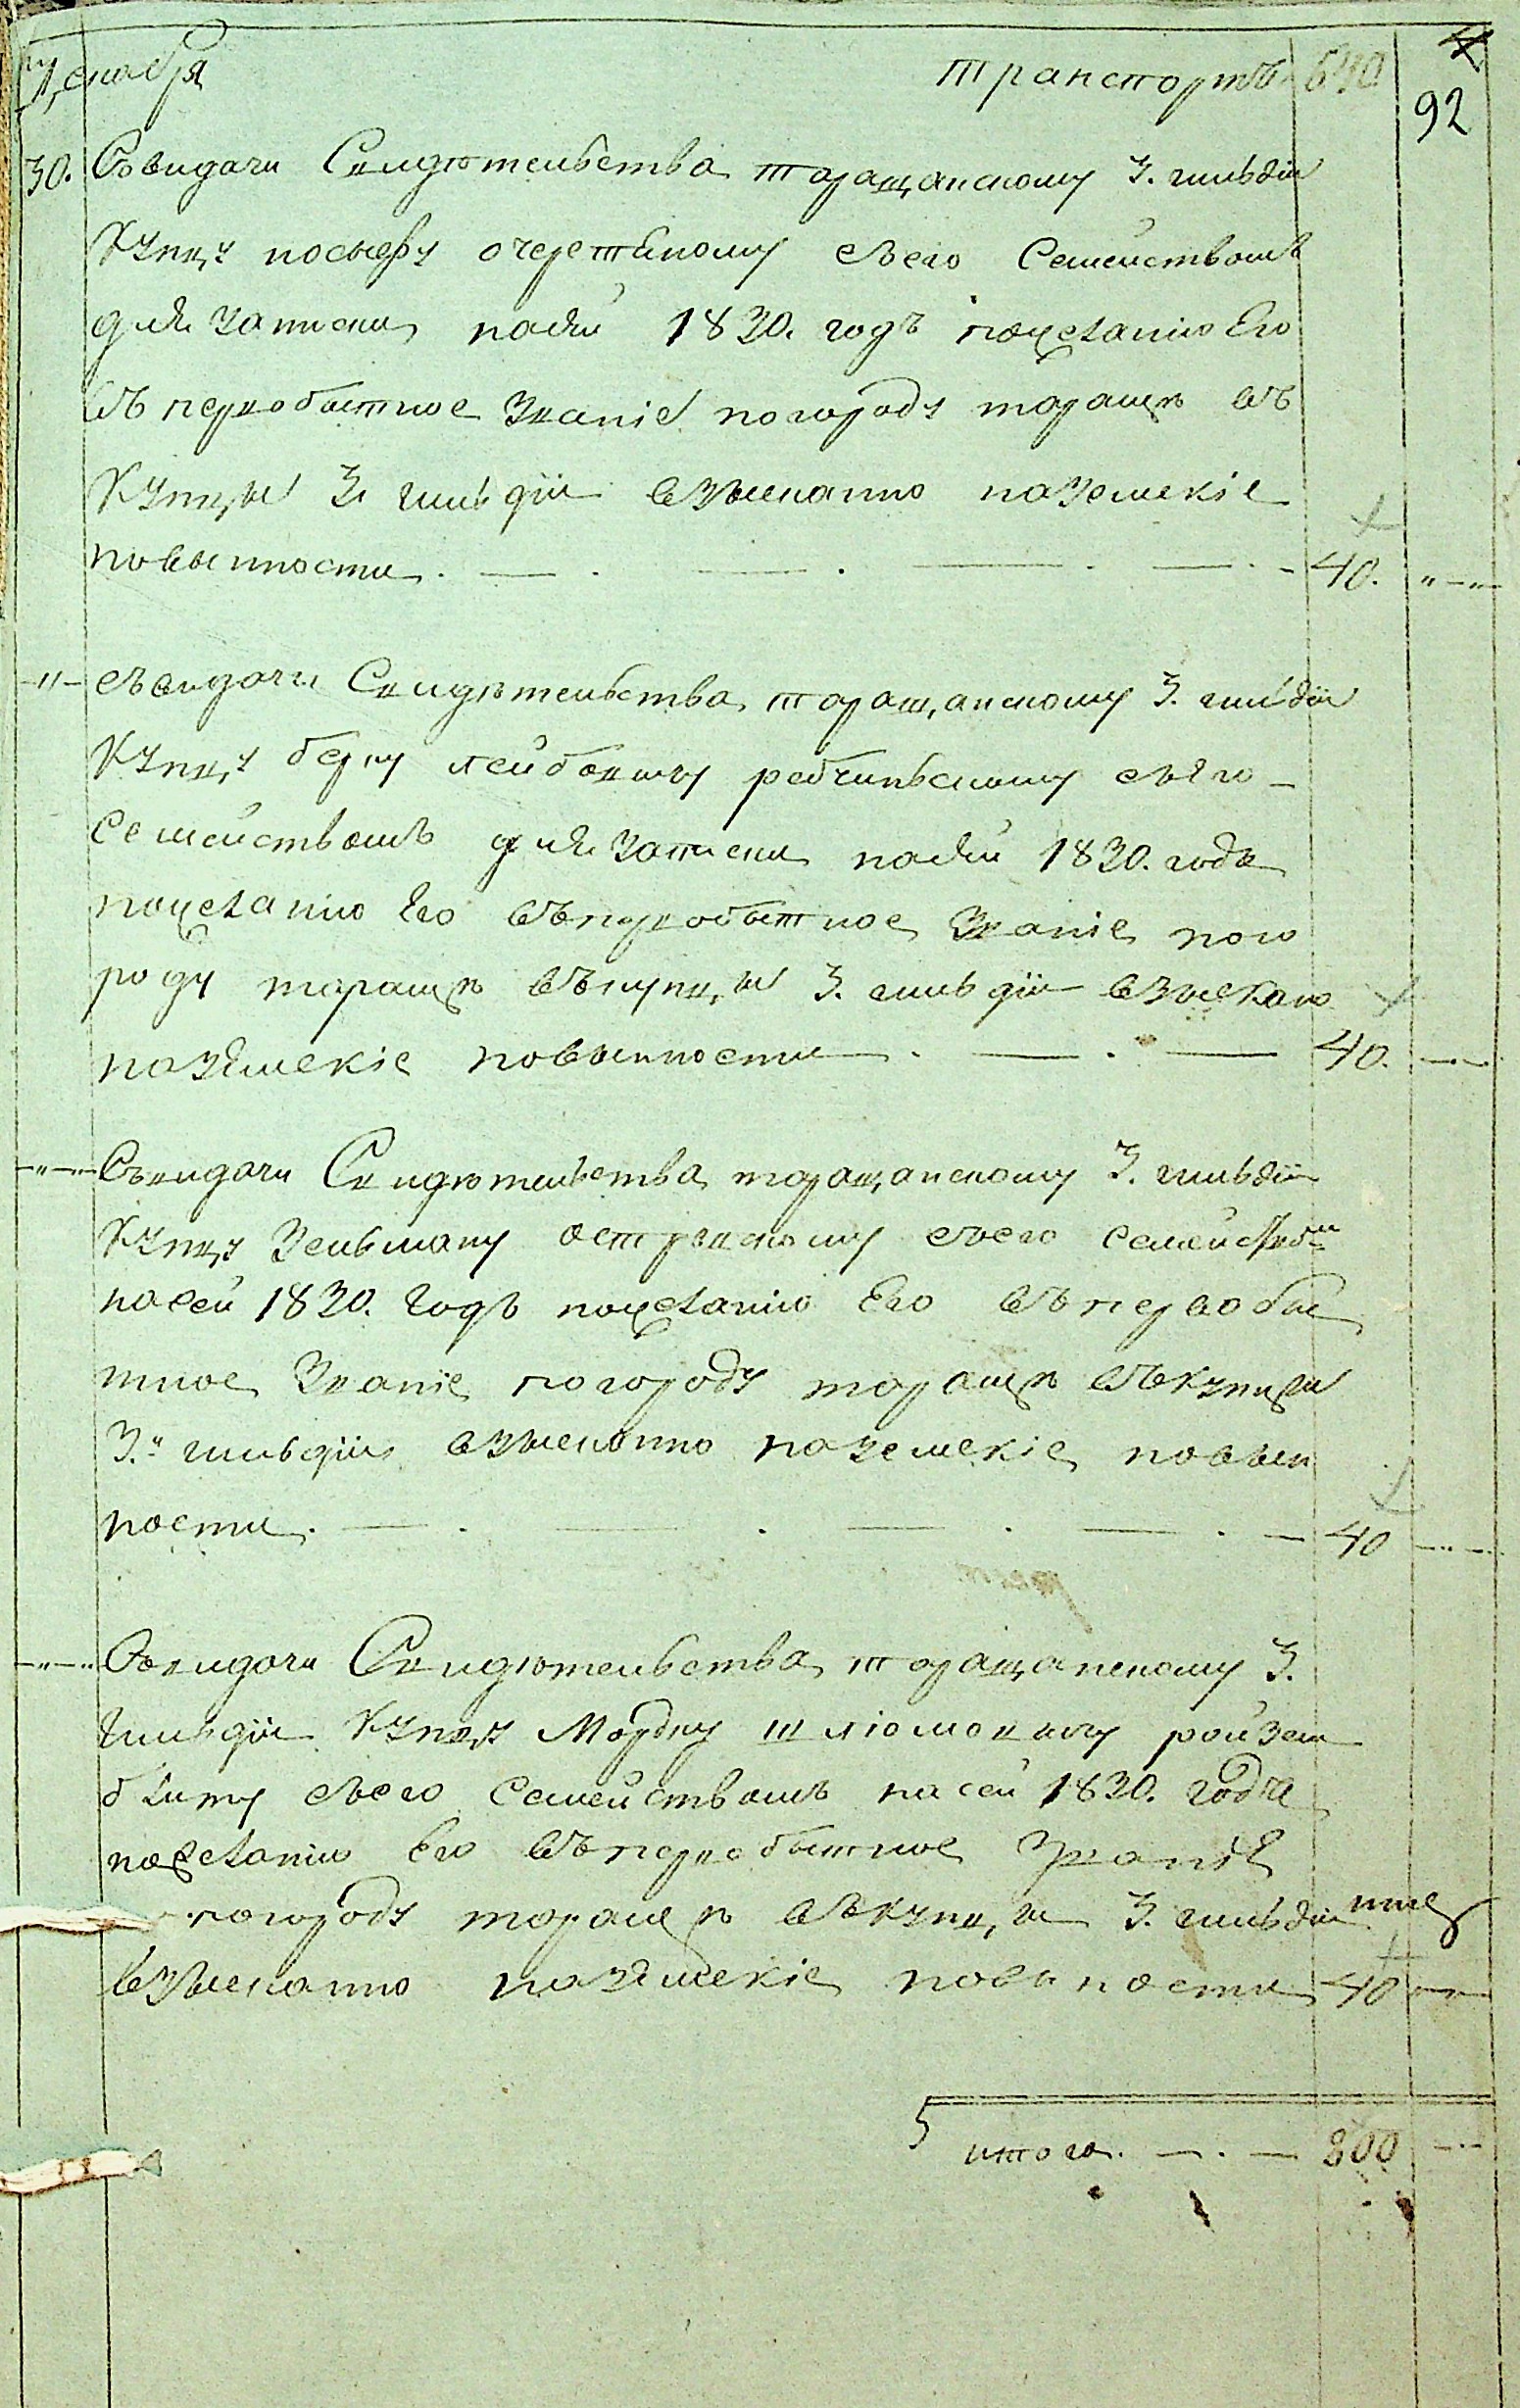 Декабря транспортъ 640
92
30. Съвидачи Свидѣтельства таращанскому 3. гильдіи
Купцу иосьефу очеретяному съего Семействомъ
для записки насей 1830. годъ поуставию Его
въ первобытное званіе погороду таращѣ въ
Купцы 3й гильдіи взысканно наземскіе
повынности. — . — . — . — . — 40. „—„—
—„— съвидачи Свидѣтельства таращанскому 3. гильдіи
Купцу берку лейбовичу съего —
Семействомъ для записки насей 1830. года
поуставию Его въпервобытное званіе пого
роду таращѣ въкупцы 3. гильдіи взыскано
наземскіе повынности — . — . — 40. —..—
—„— Съвидачи Свидѣтельства таращанскому 3. гильдіи
Купцу Зельману острискому съего семействомъ
насей 1830. годъ поуставию Его въ первобы
тное званіе погороду таращѣ въкупцы
3.й гильдіи взысканно наземскіе повын
ности. — . — . — . — . — 40 —..—
—„— Съвидачи Свидѣтельства таращанскому 3.
гильдіи Купцу Мордку шлюмовичу ройзен
блиту съего Семействомъ насей 1830. года
поуставию Его въпервобытное званіе
погороду таращѣ въкупцы 3. гильдіи
взысканно наземскіе повыности 40 —..—
итого. — . — 800 —..—